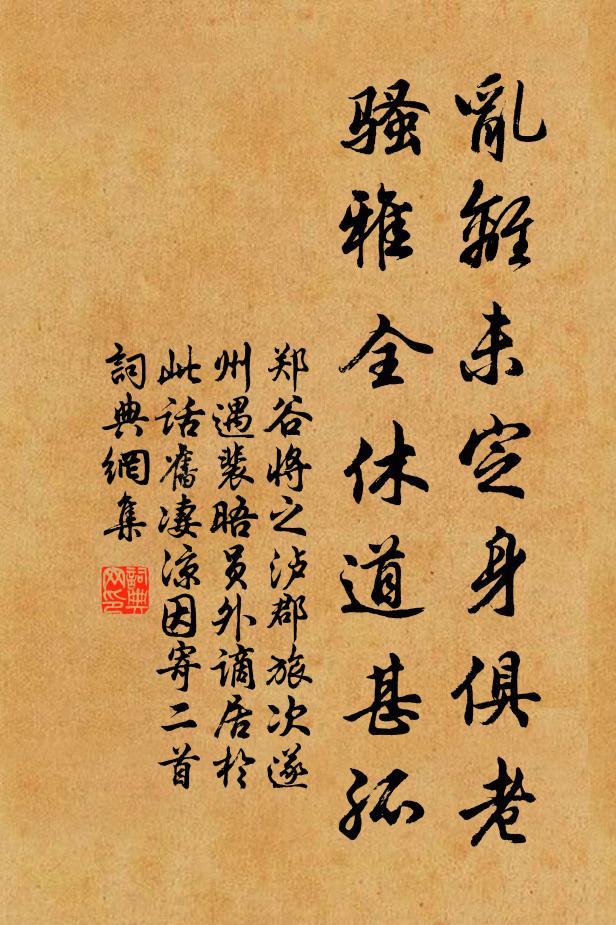 亂離未定身俱老
騷雅全休道甚孤
郑谷将之泸郡旅次遂
州遇裴晤员外谪居於
此话舊凄凉因寄二首
詞典網集
詞典
网印